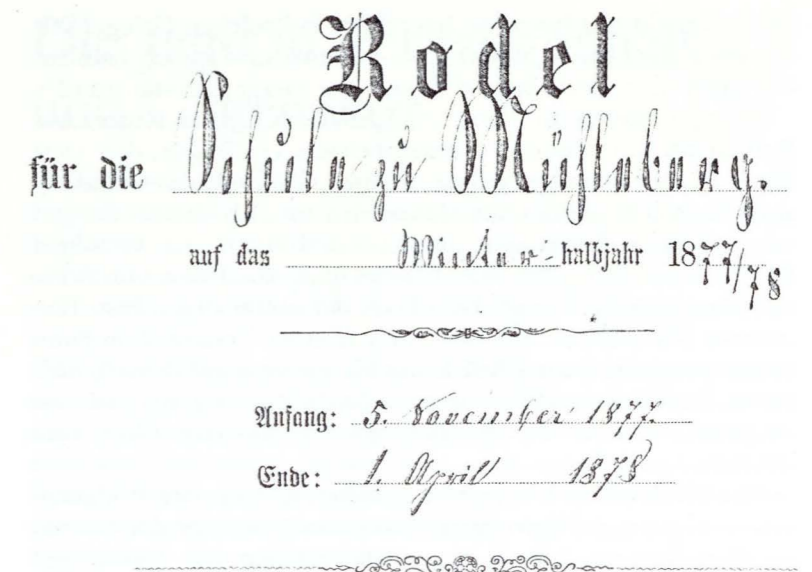 Rodel
für die Schule zu Mühleberg.
auf das Winter-halbjahr 1877/78
Anfang: 5. November 1877.
Ende: 1. April 1878